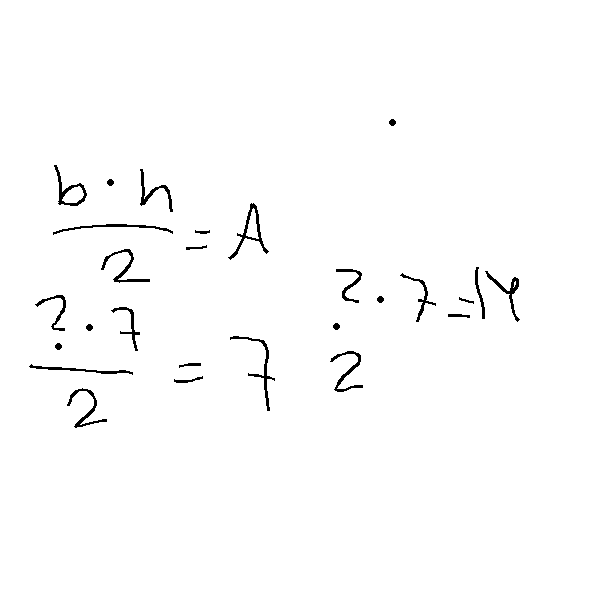 b · h / 2 = A
? · 7 / 2 = 7
? · 7 = 14
2